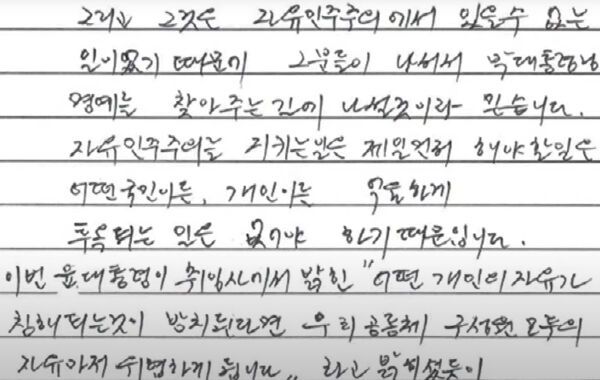 그리고 그것은 자유민주주의에서 있을수 없는
일이었기 때문에 그분들이 나서서 박대통령님
명예를 찾아주는길에 나설것이라 믿습니다.
자유민주주의를 지키는일은 제일먼저 해야할일은
어떤국민이든, 개인이든 억울하게
투옥되는 일은 없어야 하기때문입니다.
이번 윤대통령이 취임사에서 밝힌 "어떤 개인의 자유가
침해되는것이 방치된다면 우리 공동체 구성원 모두의
자유마저 위협하게 됩니다" 라고 밝히셨듯이